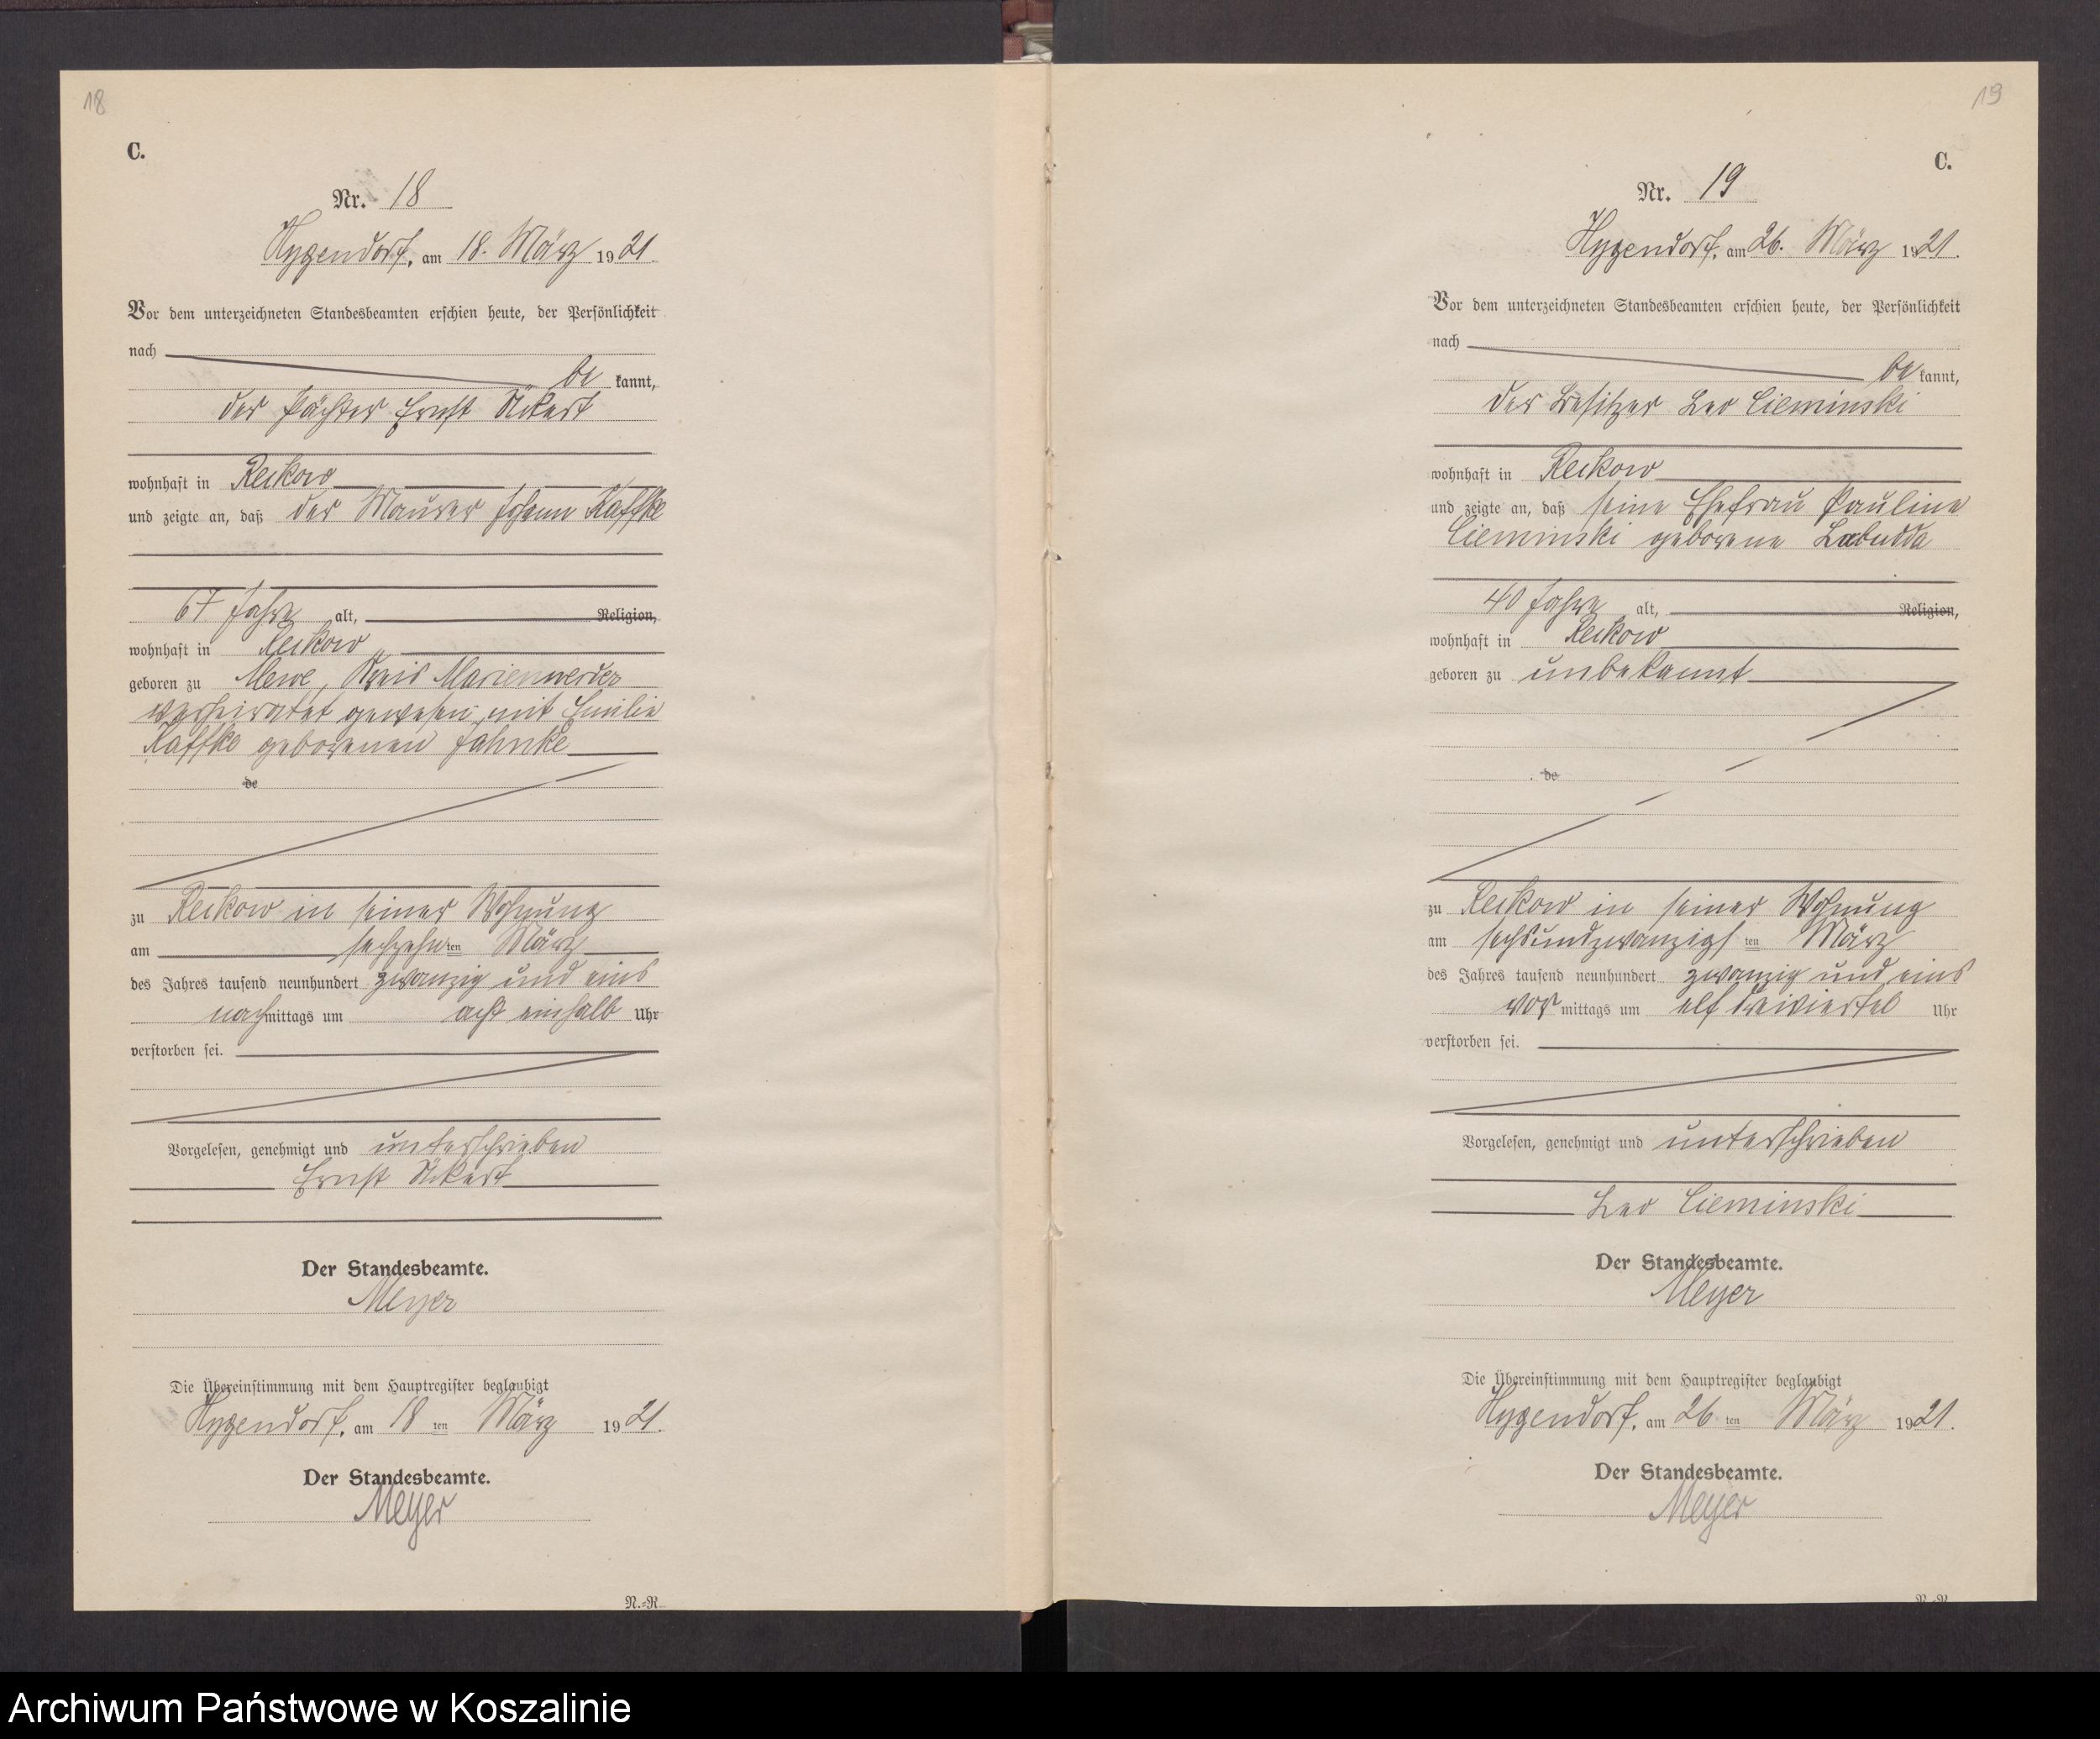 18
C.
Nr. 18
Hygendorf, am 18. März 1921.
Vor dem unterzeichneten Standesbeamten erschien heute, der Persönlichkeit
nach
be kannt,
der Pächter Ernst Ückert
wohnhaft in Reckow
und zeigte an, daß der Maurer Johann Kaffke
67 Jahre alt, Religion,
wohnhaft in Reckow
geboren zu Mewe, Kreis Marienwerder
verheiratet gewesen mit Emilie
Kaffke geborenen Jahnke
de
zu Reckow in seiner Wohnung
am sechzehnten März
des Jahres tausend neunhundert zwanzig und eins
nachmittags um acht einhalb Uhr
verstorben sei.
Vorgelesen, genehmigt und unterschrieben
Ernst Ückert
Der Standesbeamte.
Meyer
Die Übereinstimmung mit dem Hauptregister beglaubigt
Hygendorf, am 18 ten März 1921.
Der Standesbeamte.
Meyer
N.-R.
19
C.
Nr. 19
Hygendorf, am 26. März 1921.
Vor dem unterzeichneten Standesbeamten erschien heute, der Persönlichkeit
nach
be kannt,
der Besitzer Leo Cieminski
wohnhaft in Reckow
und zeigte an, daß seine Ehefrau Pauline
Cieminski geborene Labudda
40 Jahre alt, Religion,
wohnhaft in Reckow
geboren zu unbekannt
de
zu Reckow in seiner Wohnung
am sechsundzwanzigsten März
des Jahres tausend neunhundert zwanzig und eins
vor mittags um elf dreiviertel Uhr
verstorben sei.
Vorgelesen, genehmigt und unterschrieben
Leo Cieminski
Der Standesbeamte.
Meyer
Die Übereinstimmung mit dem Hauptregister beglaubigt
Hygendorf, am 26 ten März 1921.
Der Standesbeamte.
Meyer
Archiwum Państwowe w Koszalinie